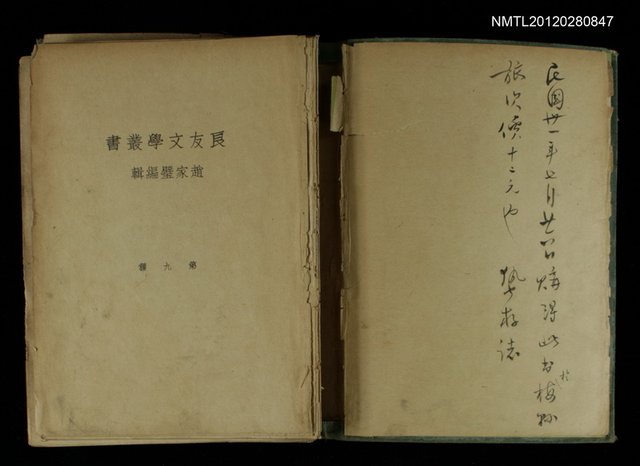 NMTL20120280847
民國卅一年七月廿六日購得此書於梅縣
旅次價十二元也 存誌
良友文學叢書
趙家璧編輯
第九種